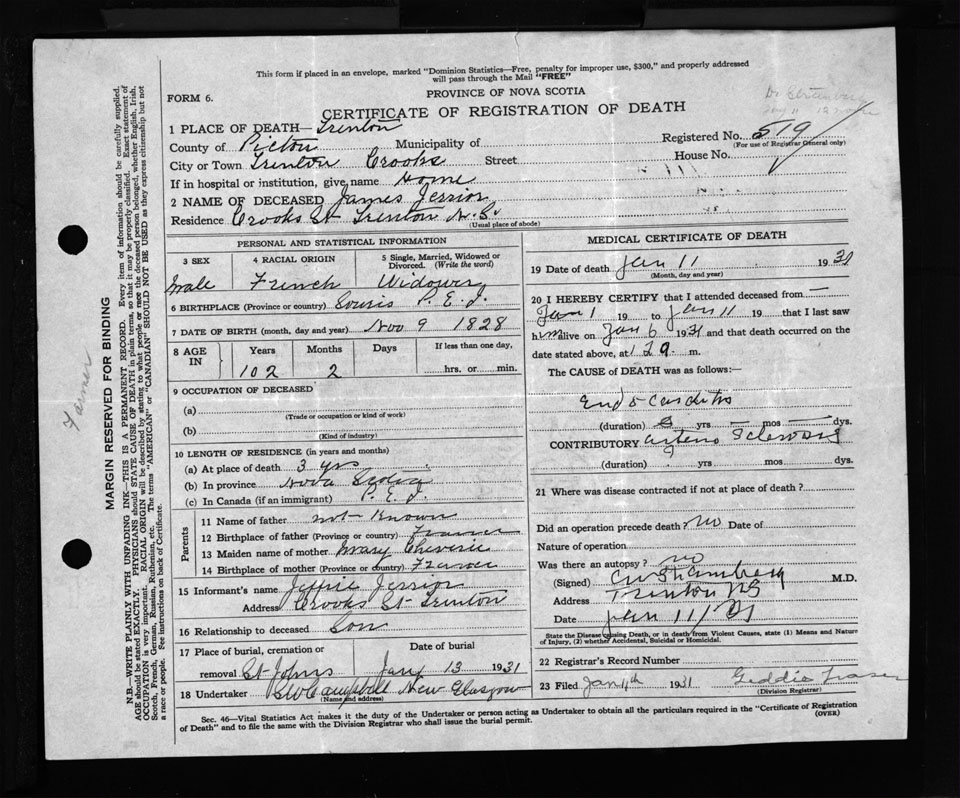 This form if placed in an envelope, marked "Dominion Statistics—Free, penalty for improper use, $300," and properly addressed
will pass through the Mail "FREE"
PROVINCE OF NOVA SCOTIA
FORM 6.
CERTIFICATE OF REGISTRATION OF DEATH
1 PLACE OF DEATH— Trenton
Registered No. 519
(For use of Registrar General only)
County of Pictou Municipality of
City or Town Trenton Crooks Street House No.
If in hospital or institution, give name Home
2 NAME OF DECEASED James Jerrior
Residence Crooks St Trenton N.S.
(Usual place of abode)
PERSONAL AND STATISTICAL INFORMATION
3 SEX 4 RACIAL ORIGIN 5 Single, Married, Widowed or Divorced. (Write the word)
Male French Widower
6 BIRTHPLACE (Province or country) Souris P.E.I.
7 DATE OF BIRTH (month, day and year) Nov 9 1828
8 AGE IN Years Months Days If less than one day,
102 2 hrs. or min.
9 OCCUPATION OF DECEASED
(a)
(Trade or occupation or kind of work)
(b)
(Kind of industry)
10 LENGTH OF RESIDENCE (in years and months)
(a) At place of death 3 yrs
(b) In province Nova Scotia
(c) In Canada (if an immigrant) P.E.I.
Parents
11 Name of father not Known
12 Birthplace of father (Province or country) France
13 Maiden name of mother Mary Cheverie
14 Birthplace of mother (Province or country) France
15 Informant's name Jeffrie Jerrior
Address Crooks St Trenton
16 Relationship to deceased Son
17 Place of burial, cremation or Date of burial
removal St Johns Jany 13 1931
18 Undertaker Campbell New Glasgow
(Name and address)
MEDICAL CERTIFICATE OF DEATH
19 Date of death Jan 11 1931
(Month, day and year)
20 I HEREBY CERTIFY that I attended deceased from
Jan 1 19 to Jan 11 19 that I last saw
him alive on Jan 6 1931 and that death occurred on the
date stated above, at m.
The CAUSE of DEATH was as follows:
Endocarditis
(duration) yrs mos dys.
CONTRIBUTORY Arterio Sclerosis
(duration) yrs mos dys.
21 Where was disease contracted if not at place of death?
Did an operation precede death? No Date of
Nature of operation
Was there an autopsy? no
(Signed) M.D.
Address Trenton NS
Date Jan 11/31
State the Disease causing Death, or in death from Violent Causes, state (1) Means and Nature
of Injury, (2) whether Accidental, Suicidal or Homicidal.
22 Registrar's Record Number
23 Filed Jan 1931 Geddie Fraser
(Division Registrar)
Sec. 46—Vital Statistics Act makes it the duty of the Undertaker or person acting as Undertaker to obtain all the particulars required in the "Certificate of Registration
of Death" and to file the same with the Division Registrar who shall issue the burial permit.
(OVER)
Farmer
MARGIN RESERVED FOR BINDING
N.B.—WRITE PLAINLY WITH UNFADING INK—THIS IS A PERMANENT RECORD. Every item of information should be carefully supplied.
AGE should be stated EXACTLY. PHYSICIANS should STATE CAUSE OF DEATH in plain terms, so that it may be properly classified. Exact statement of
OCCUPATION is very important. RACIAL ORIGIN will be described by stating to what people or race the deceased person belonged, whether English, Irish,
Scotch, French, German, Russian, Ruthenian, etc. The terms "AMERICAN" or "CANADIAN" SHOULD NOT BE USED as they express citizenship but not
a race or people. See instructions on back of Certificate.